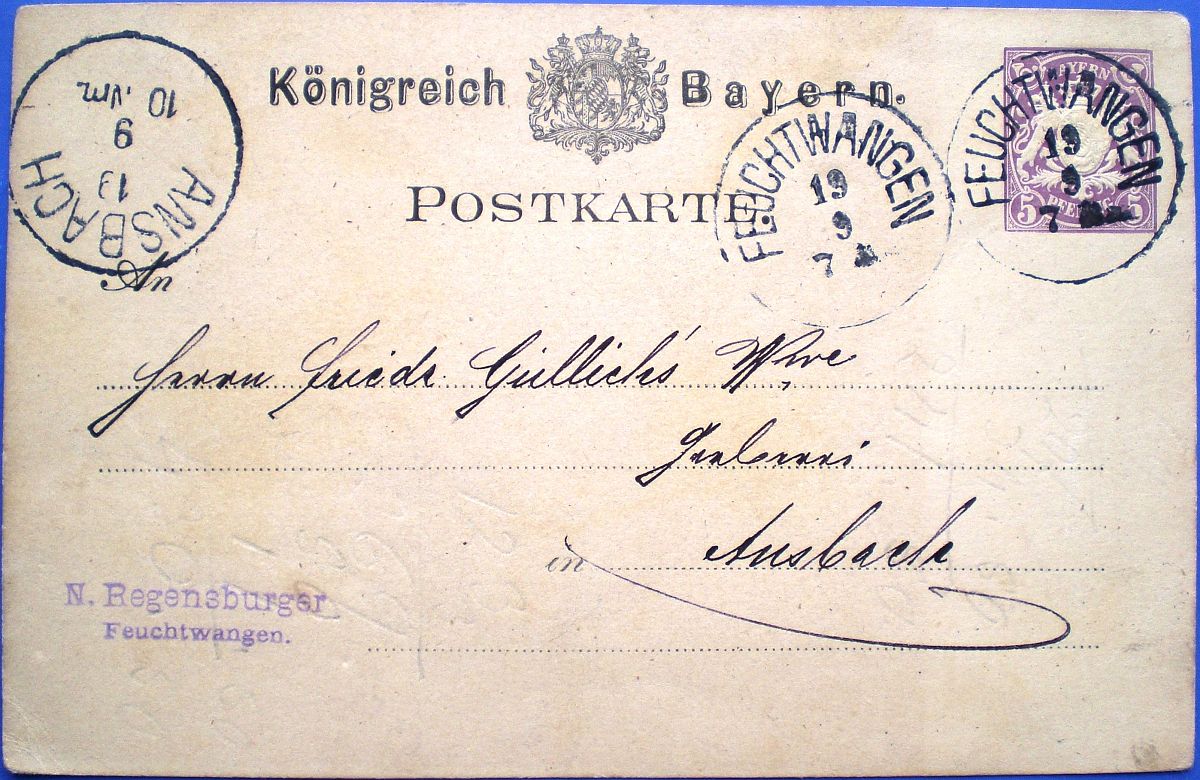 Königreich Bayern.
POSTKARTE
BAYERN
5 5
5 PFENNIG 5
FEUCHTWANGEN
19
9
7
FEUCHTWANGEN
19
9
7
ANSBACH
19
9
10 Vm.
An
Herrn Friedr Güllich's Wwe
Gerberei
in Ansbach
N. Regensburger
Feuchtwangen.